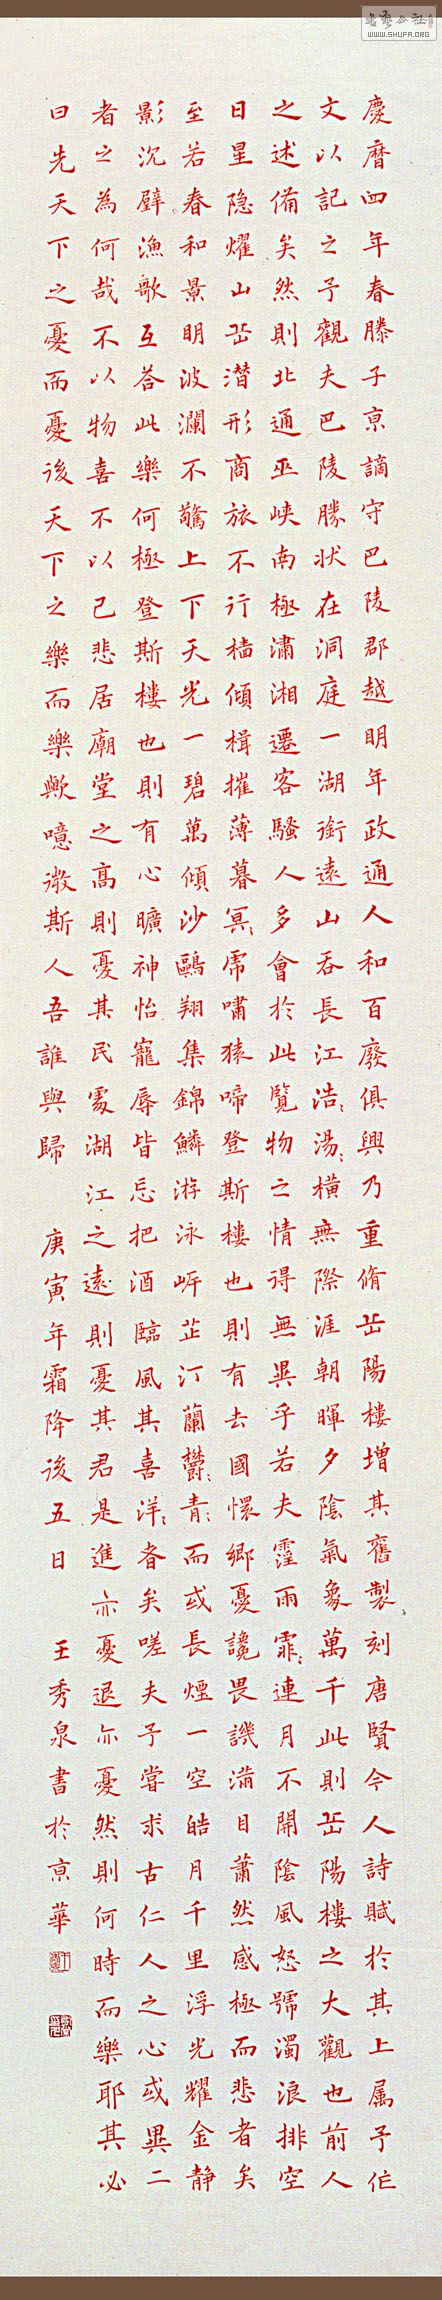 慶曆四年春滕子京謫守巴陵郡越明年政通人和百廢俱興乃重脩岳陽樓增其舊製刻唐賢今人詩賦於其上属予作
文以記之予觀夫巴陵勝状在洞庭一湖銜遠山吞長江浩:湯:橫無際涯朝暉夕陰氣象萬千此則岳陽樓之大觀也前人
之述備矣然則北通巫峽南極瀟湘遷客騷人多會於此覽物之情得無異乎若夫霪雨霏:連月不開陰風怒號濁浪排空
日星隐耀山岳潛形商旅不行檣傾楫摧薄暮冥:虎嘯猿啼登斯樓也則有去國懷鄉憂讒畏譏滿目蕭然感極而悲者矣
至若春和景明波瀾不驚上下天光一碧萬傾沙鷗翔集錦鱗游泳岸芷汀蘭欝:青:而或長煙一空皓月千里浮光耀金静
影沉壁漁歌互荅此樂何極登斯樓也則有心曠神怡寵辱皆忘把酒臨風其喜洋:者矣嗟夫予嘗求古仁人之心或異二
者之為何哉不以物喜不以己悲居廟堂之高則憂其民處湖江之遠則憂其君是進亦憂退亦憂然則何時而樂耶其必
曰先天下之憂而憂後天下之樂而樂歟噫微斯人吾誰與歸 庚寅年霜降後五日 王秀泉書於京華
WWW.SHUFA.ORG